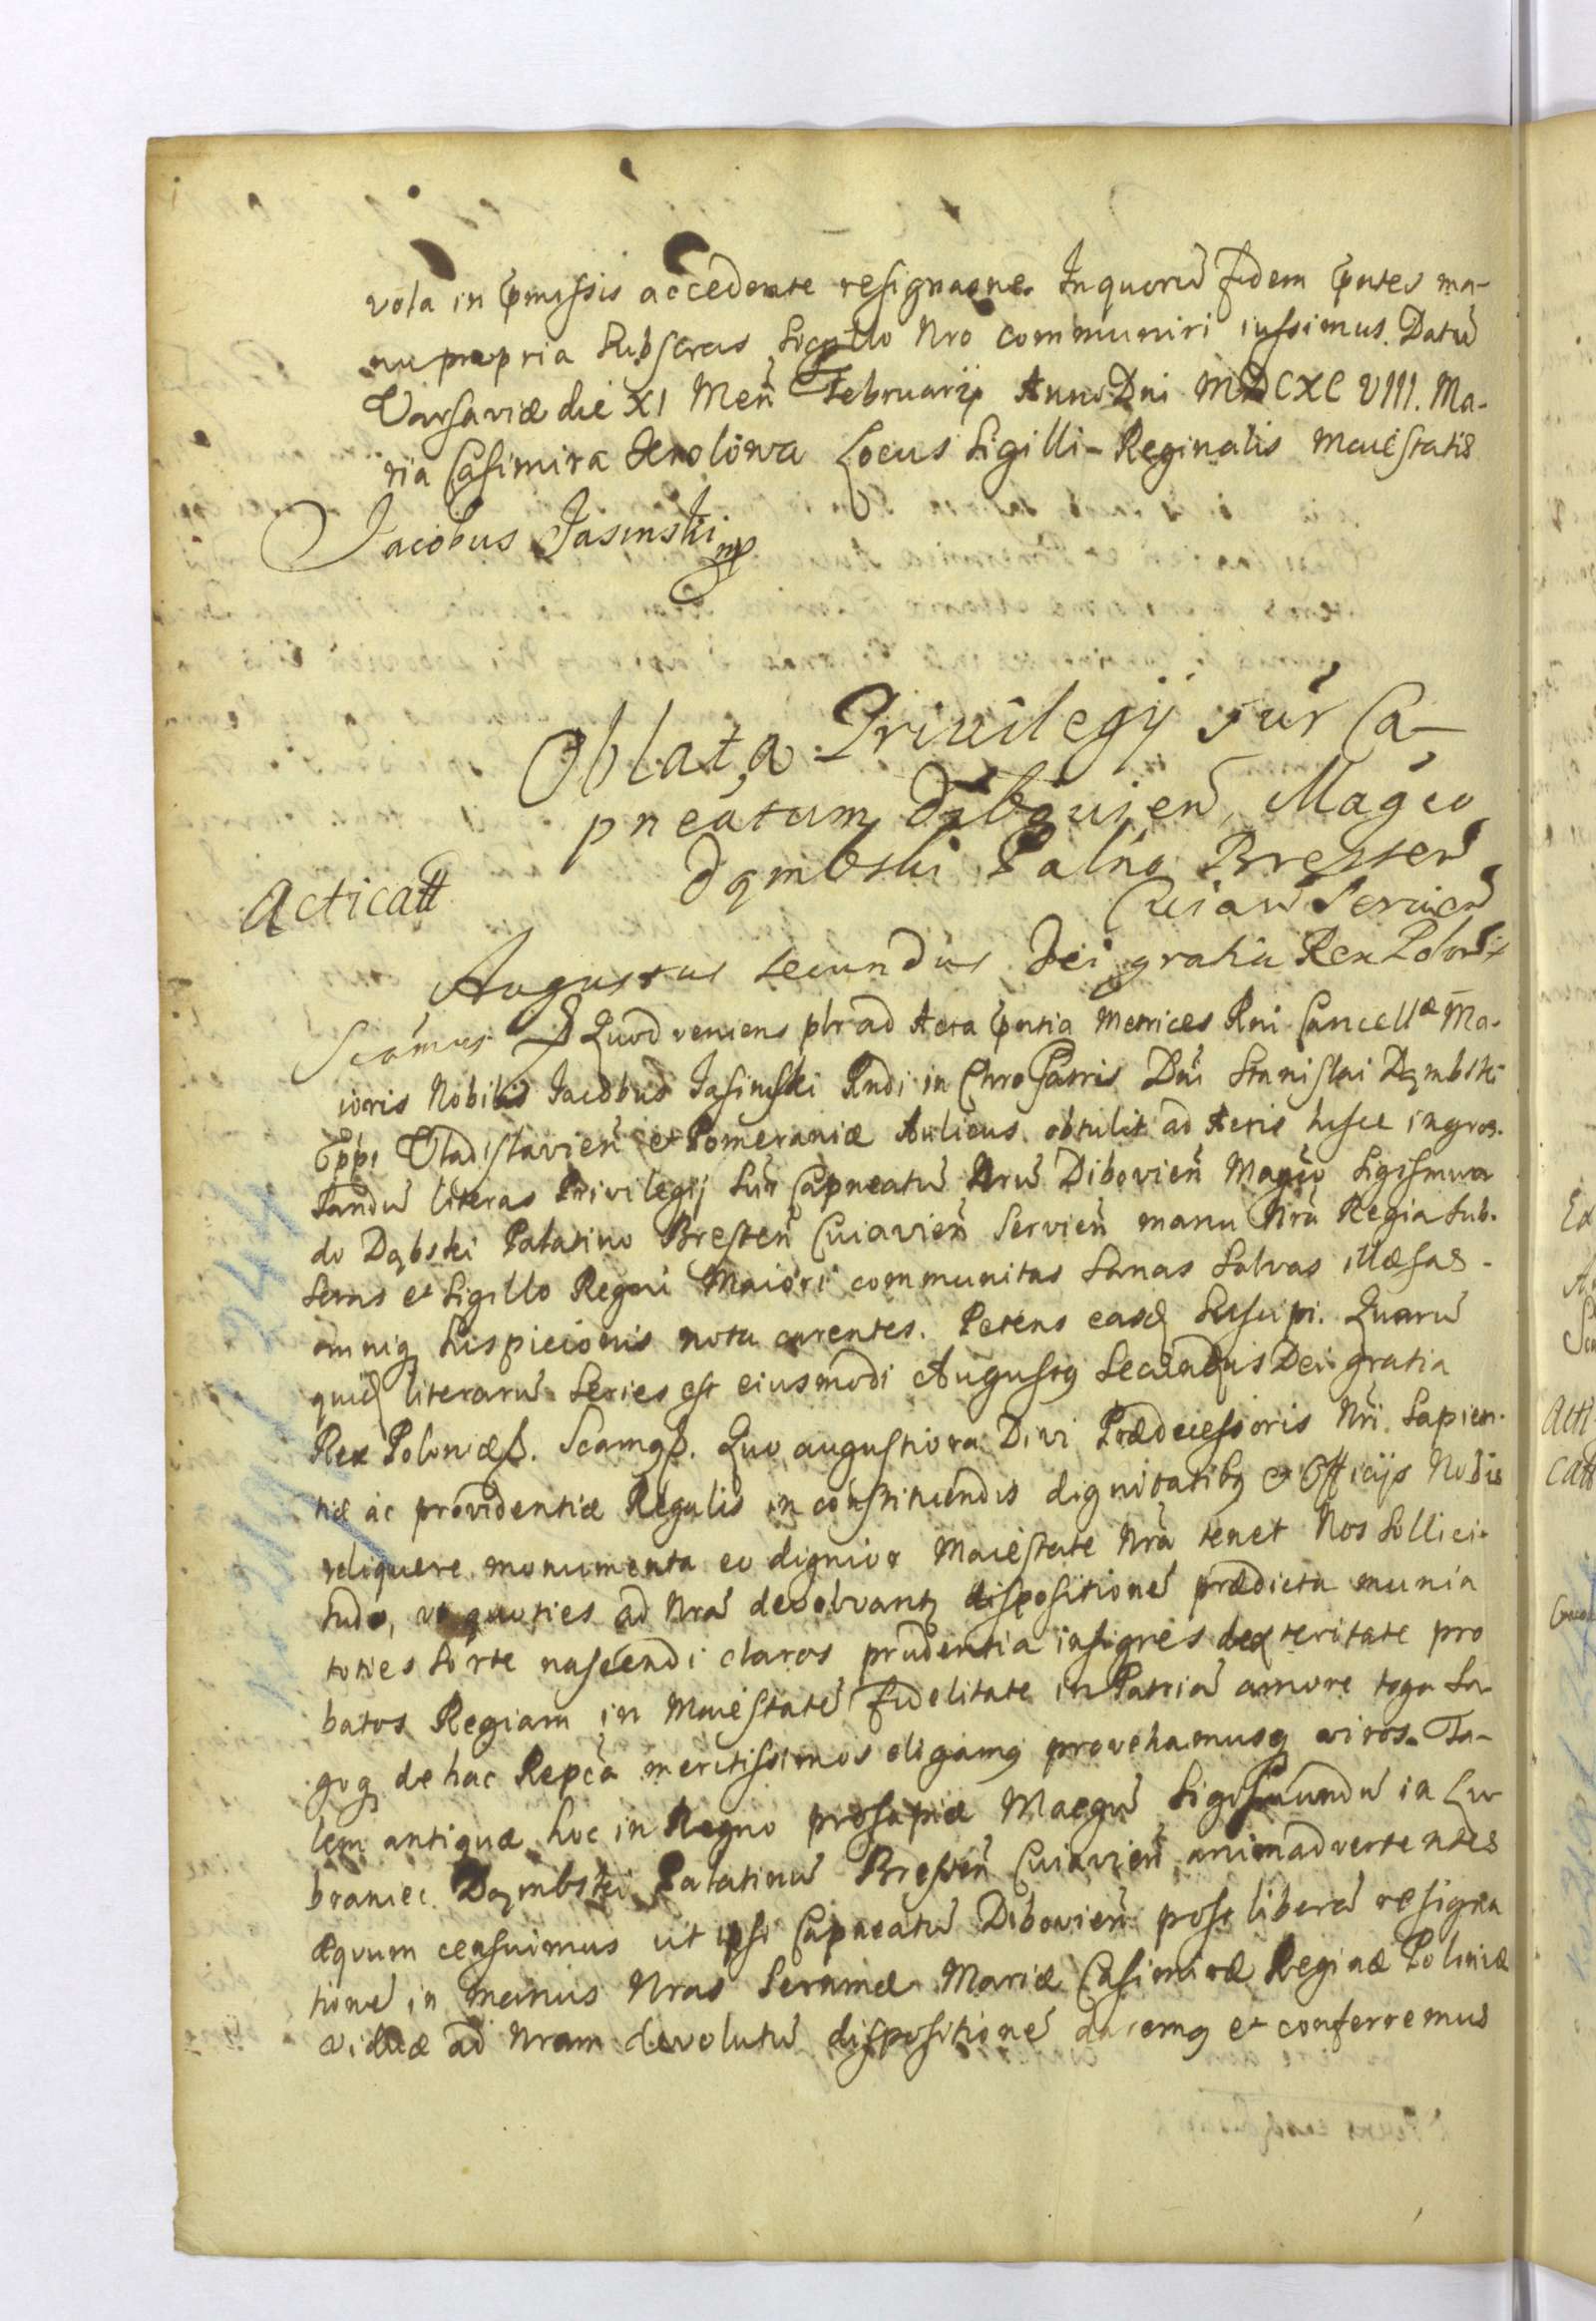 vola in præmissis accedente resignaone. In quorū fidem præntes ma-
nu propria Subscras Sigillo Nro communiri iussimus. Datū
Varsaviæ die XI Men̄ Februarij Anno Dni MDCXC VIII. Ma-
ria Casimira Krolowa Locus Sigilli Reginalis Maiestatis
Jacobus Jasinski mp
Oblata Privilegij sup̄r Ca-
pneatum Dybouien̄, Magco
Dąmbski Palno Bresten̄
Cuiaw Servien̄
Acticatt
Augustus Secundus Dei gratia Rex Polon̄
Scamus ꝑ Quod veniens pl̄r ad Acta præntia Metrices Rni Cancellæ Ma-
ioris Nobilis Jacobus Jasinski Rndi in Chro Patris Dni Stanislai Dąmbski
Eppi Vladislavien̄ et Pomeraniæ Aulicus obtulit ad Actis hisce ingros-
sandū literas Privilegij Sup̄r Capneatū Nrū Dibovien̄ Magco Sigismun
do Dąbski Palatino Bresten̄ Cuiavien̄ Servien̄ manu Nrā Regia Sub-
scras et Sigillo Regni Maiori communitas Sanas Salvas illæsas
omniq Suspicionis nota carentes. Petens easdē Suscipi. Quarū
quidē literarū Series est eiusmodi Augustq Secundus Dei gratia
Rex Poloniæ ꝑ. Scamq ꝑ. Quo augustiora Divi Prædecessoris Nri Sapien-
tiæ ac providentiæ Regalis in constituendis dignitatibq et Officijs Nobis
reliquere monumenta eo dignior Maiestate Nrā tenet Nos Sollici-
tudo, ut quoties ad Nrā devolvantq dispositionē prædicta munia
toties Sorte nascendi claros prudentia insignes dexteritate pro
batos Regiam in Maiestatē fidelitate in Patriā amore toga Sa
goq de hac Repcā meritissimos eligamq provehamusq viros. Ta-
lem antiquæ hoc in Regno prosapiæ Magcū Sigismundū in Lu
braniec Dąmbski Palatinū Bresten̄ Cuiavien̄ animadvertentes
æquum censuimus ut ipsi Capneatū Dibovien̄ post liberā resigna
tionē in manus Nras Sernmæ Mariæ Casimiræ Reginæ Poloniæ
viduæ ad Nram devolutū dispositionē daremq et conferremus